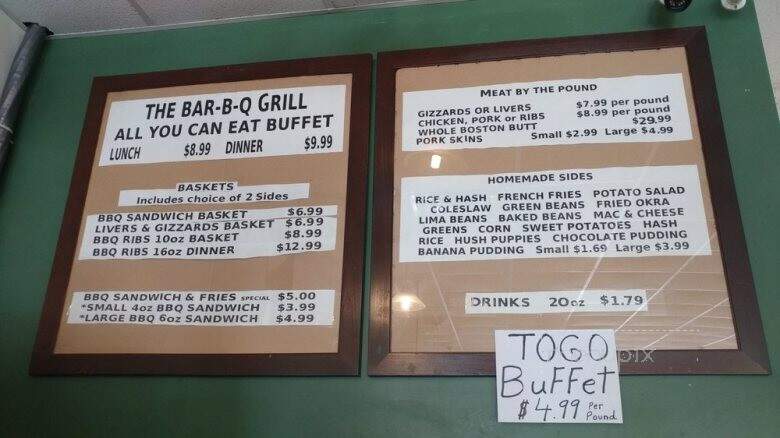 THE BAR-B-Q GRILL
ALL YOU CAN EAT BUFFET
LUNCH $8.99 DINNER $9.99
BASKETS
Includes choice of 2 Sides
BBQ SANDWICH BASKET $6.99
LIVERS & GIZZARDS BASKET $6.99
BBQ RIBS 10oz BASKET $8.99
BBQ RIBS 16oz DINNER $12.99
BBQ SANDWICH & FRIES SPECIAL $5.00
*SMALL 4oz BBQ SANDWICH $3.99
*LARGE BBQ 6oz SANDWICH $4.99
MEAT BY THE POUND
GIZZARDS OR LIVERS $7.99 per pound
CHICKEN, PORK or RIBS $8.99 per pound
WHOLE BOSTON BUTT $29.99
PORK SKINS Small $2.99 Large $4.99
HOMEMADE SIDES
RICE & HASH FRENCH FRIES POTATO SALAD
COLESLAW GREEN BEANS FRIED OKRA
LIMA BEANS BAKED BEANS MAC & CHEESE
GREENS CORN SWEET POTATOES HASH
RICE HUSH PUPPIES CHOCOLATE PUDDING
BANANA PUDDING Small $1.69 Large $3.99
DRINKS 20oz $1.79
TOGO
BuFFet
$4.99 Per Pound